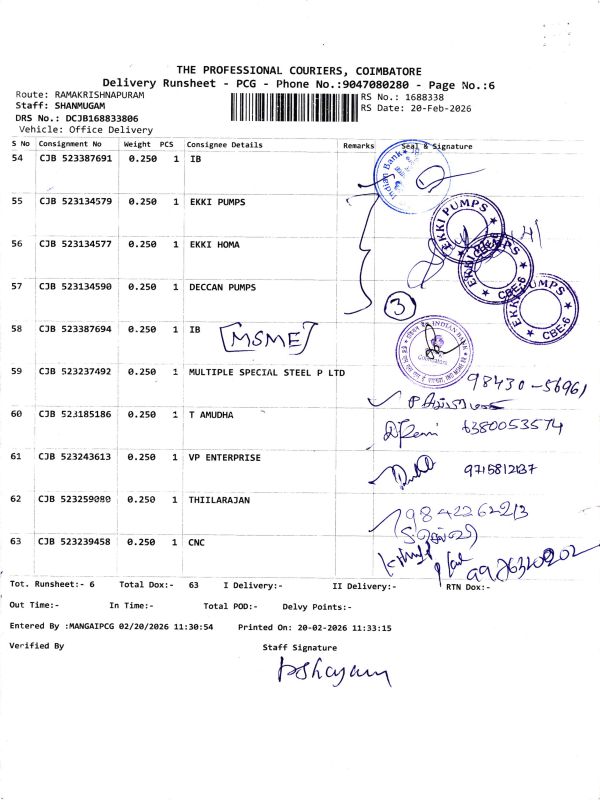 THE PROFESSIONAL COURIERS, COIMBATORE
Delivery Runsheet - PCG - Phone No.:9047080280 - Page No.:6
Route: RAMAKRISHNAPURAM
RS No.: 1688338
Staff: SHANMUGAM
RS Date: 20-Feb-2026
DRS No.: DCJB168833806
Vehicle: Office Delivery
S No Consignment No Weight PCS Consignee Details Remarks Seal & Signature
54 CJB 523387691 0.250 1 IB
Indian Bank
55 CJB 523134579 0.250 1 EKKI PUMPS
EKKI PUMPS
56 CJB 523134577 0.250 1 EKKI HOMA
CBE-6
57 CJB 523134590 0.250 1 DECCAN PUMPS
EKKI PUMPS
CBE-6
3
58 CJB 523387694 0.250 1 IB
[MSME]
INDIAN BANK
59 CJB 523237492 0.250 1 MULTIPLE SPECIAL STEEL P LTD
98430-56961
60 CJB 523185186 0.250 1 T AMUDHA
6380053574
61 CJB 523243613 0.250 1 VP ENTERPRISE
9715812137
62 CJB 523259080 0.250 1 THIILARAJAN
9842262213
63 CJB 523239458 0.250 1 CNC
Tot. Runsheet:- 6 Total Dox:- 63 I Delivery:- II Delivery:- RTN Dox:-
Out Time:- In Time:- Total POD:- Delvy Points:-
Entered By :MANGAIPCG 02/20/2026 11:30:54 Printed On: 20-02-2026 11:33:15
Verified By Staff Signature